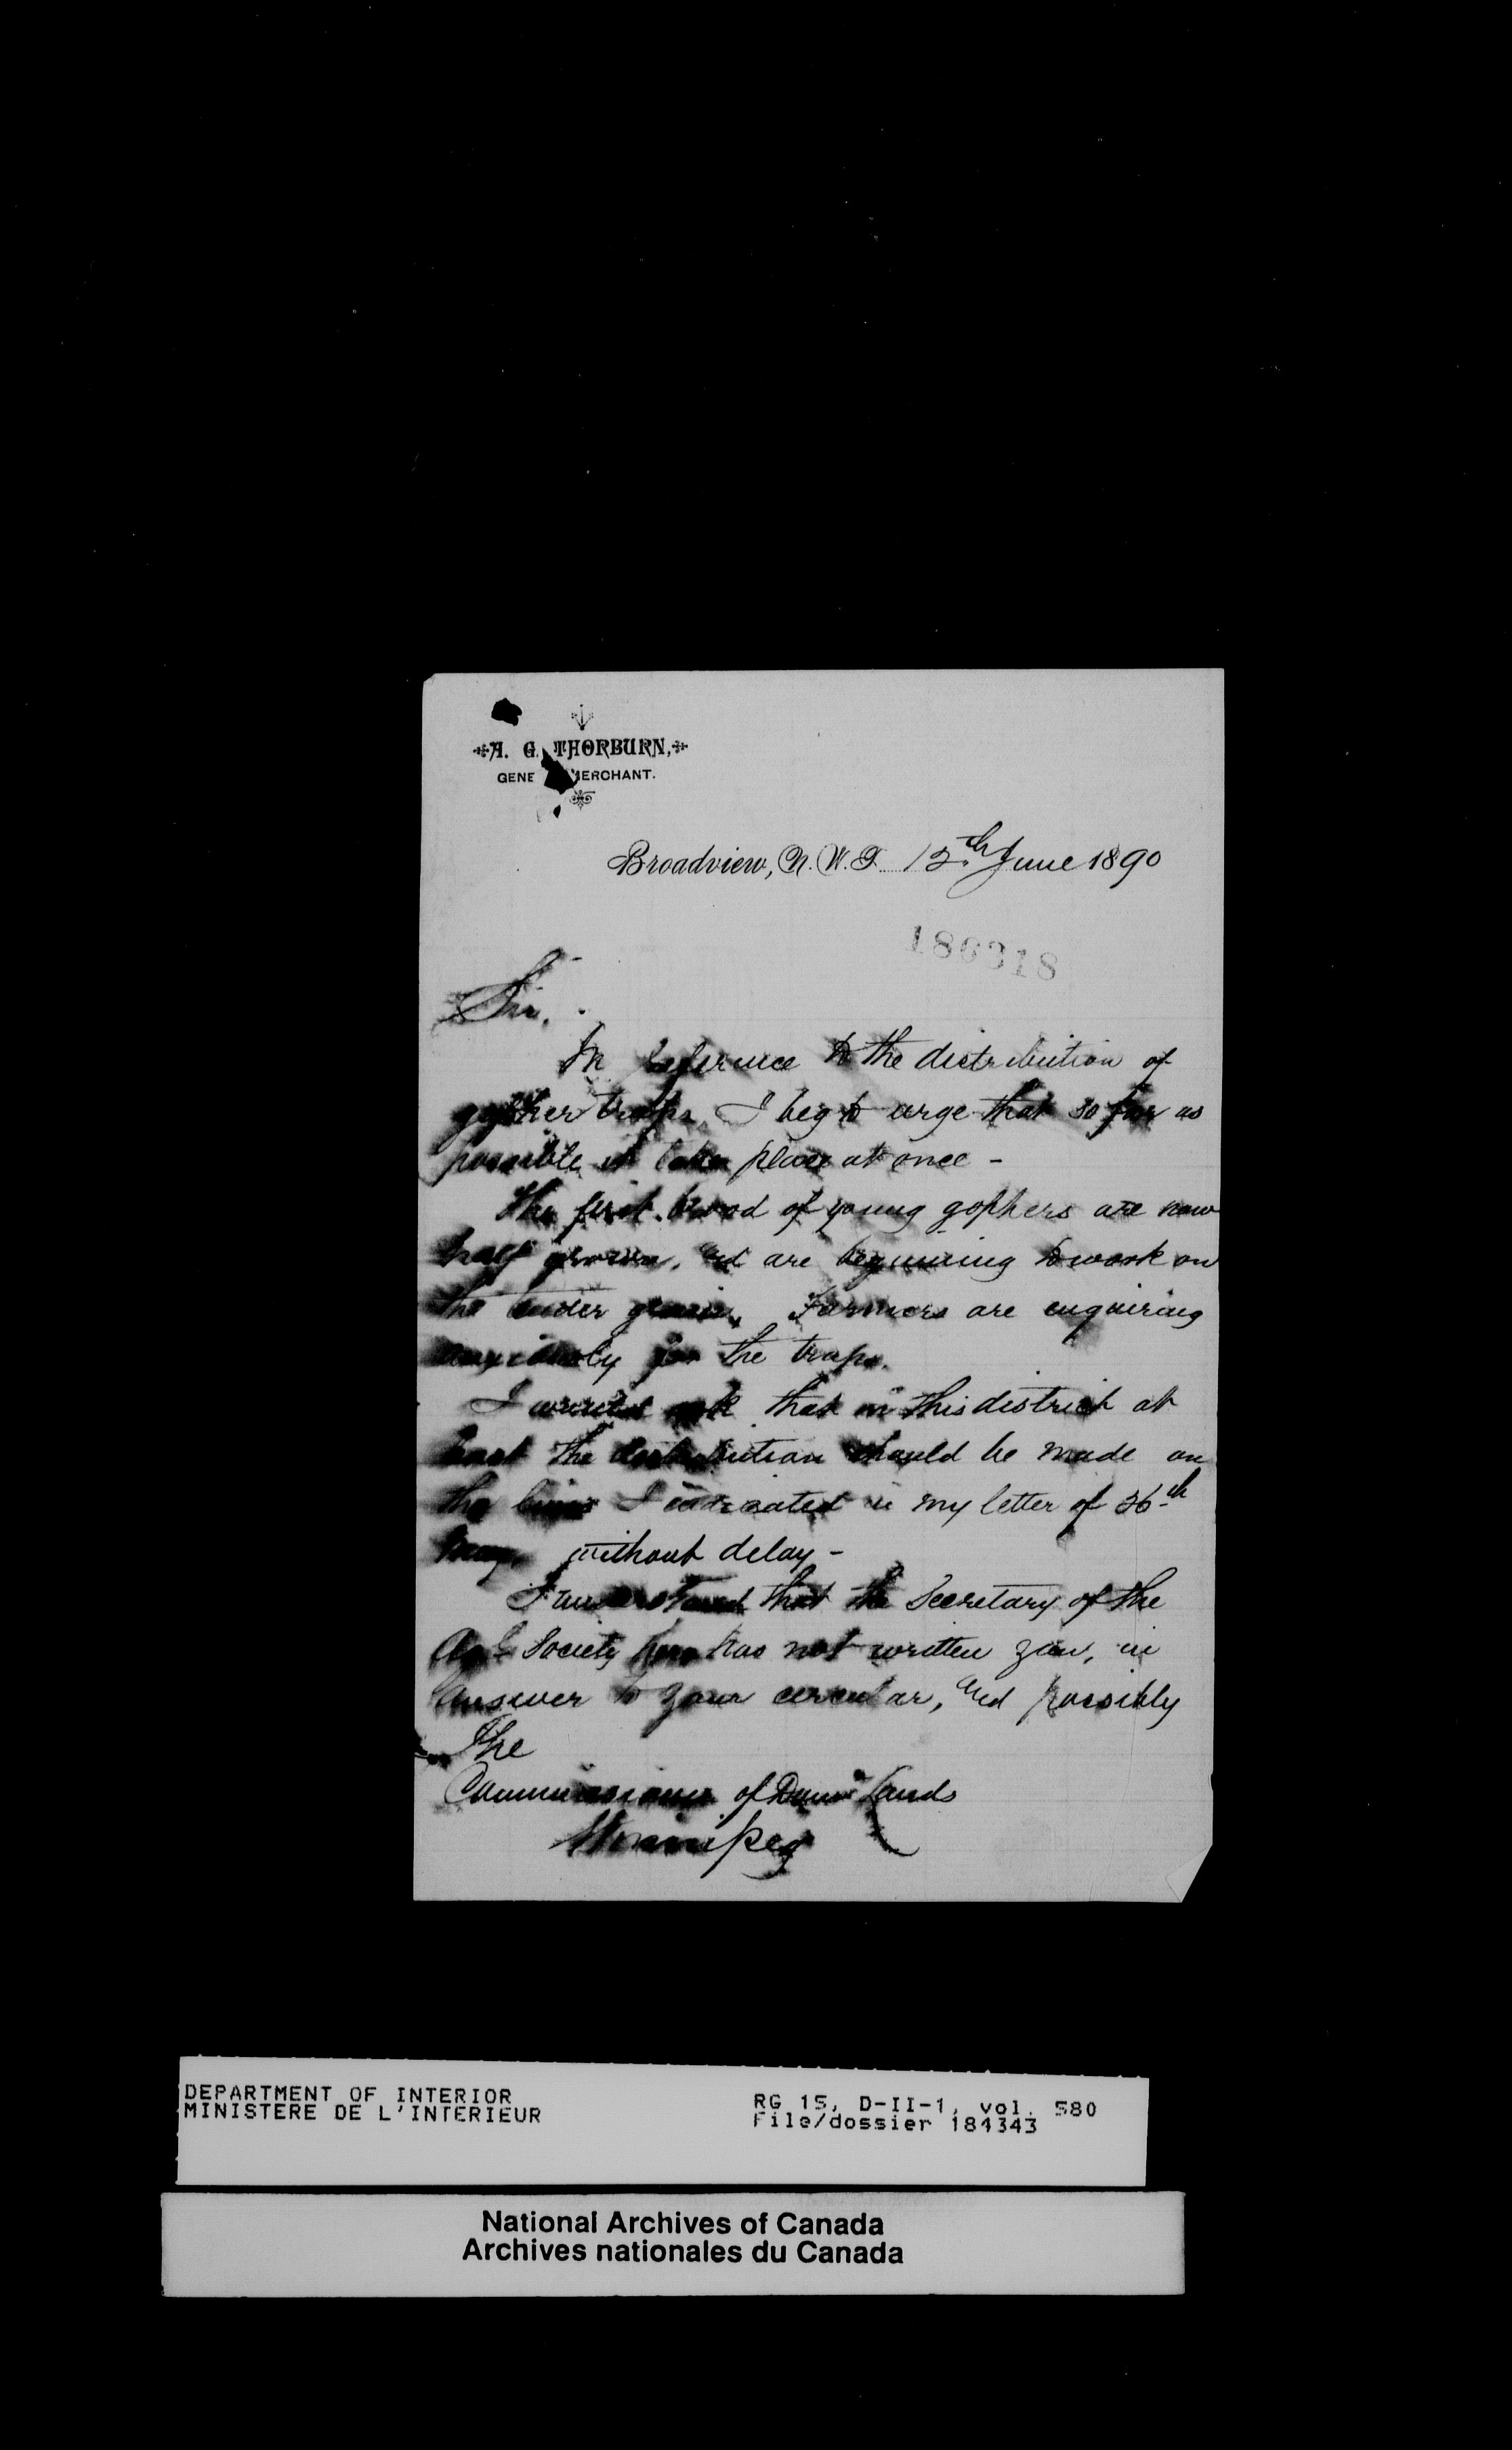 A. G. THORBURN,
GENE MERCHANT.
Broadview, N. W. T. 12th June 1890
186318
Sir,
In reference to the distribution of
gopher traps, I beg to urge that so far as
possible it take place at once -
The first brood of young gophers are now
half grown, and are beginning to work on
the tender grain. Farmers are enquiring
anxiously for the traps.
I would ask that in this district at
least the distribution should be made on
the lines I indicated in my letter of 26th
May, without delay -
I understand that the Secretary of the
Agl Society here has not written you, in
answer to your circular, and possibly
The
Commissioner of Domn Lands
Winnipeg
DEPARTMENT OF INTERIOR
MINISTERE DE L'INTERIEUR
RG 15, D-II-1, vol. 580
File/dossier 184343
National Archives of Canada
Archives nationales du Canada